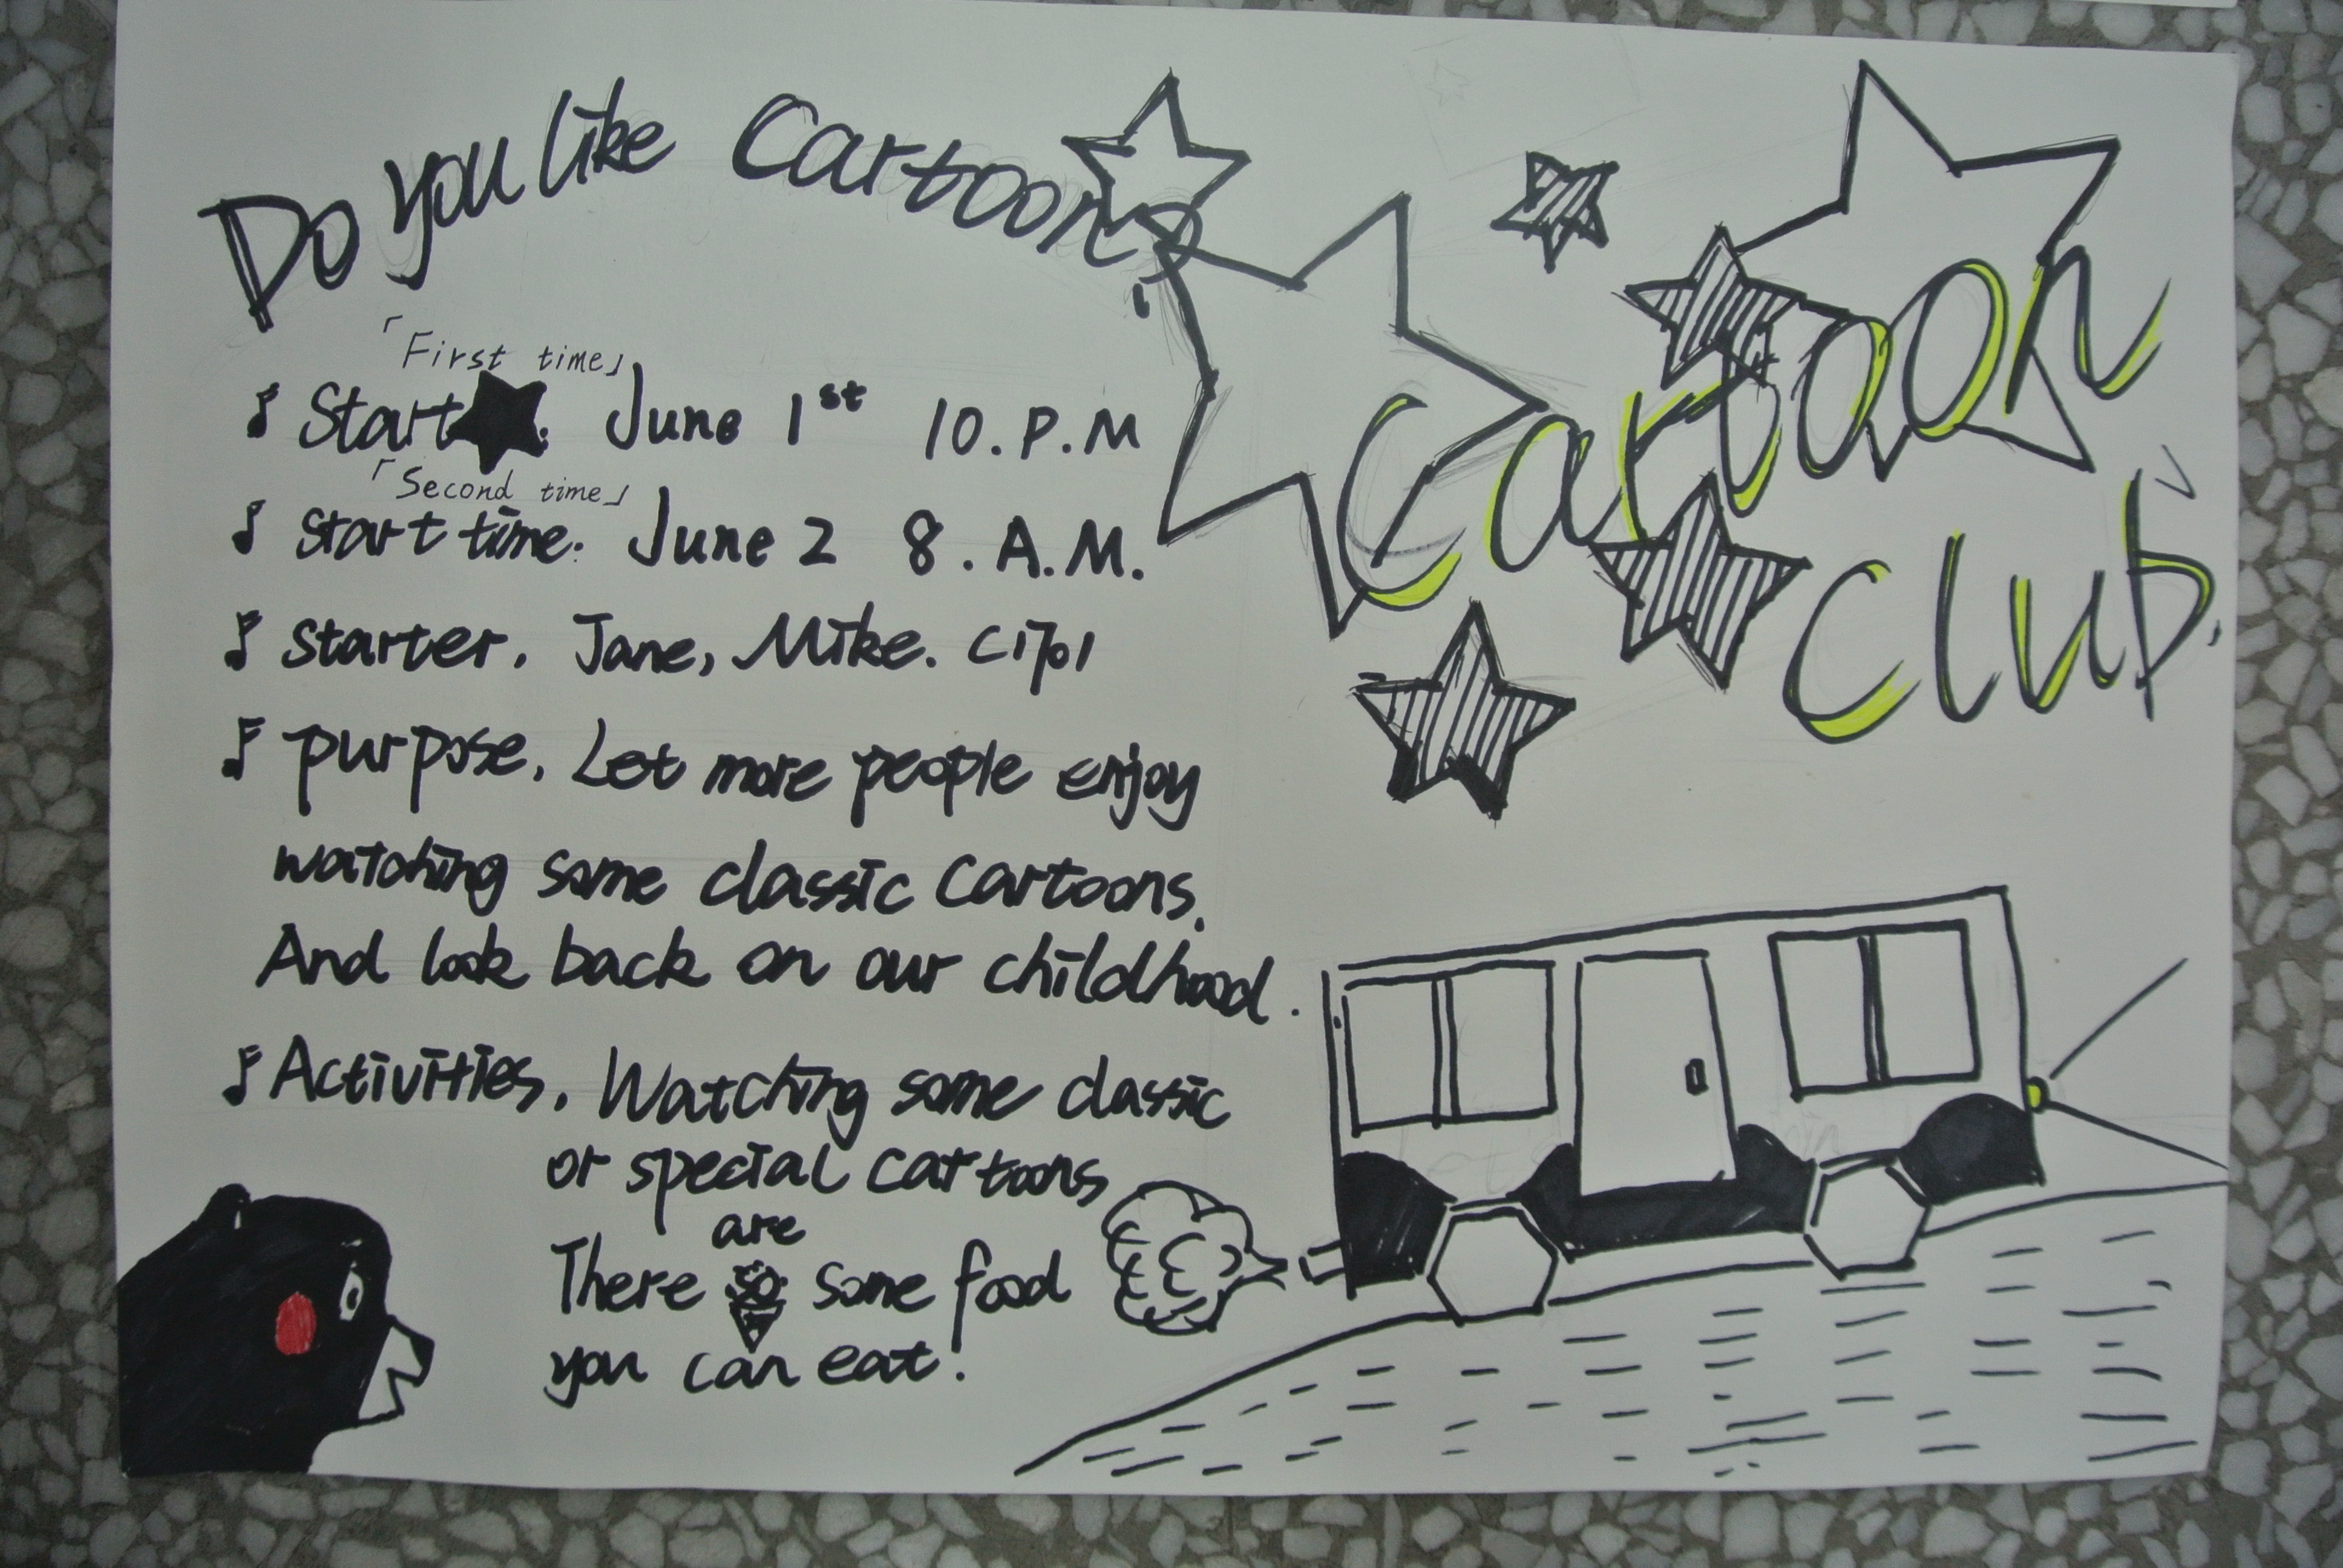 Do you like Cartoon?
Cartoon
Club.
「First time」
Start : June 1st 10.P.M
「Second time」
start time: June 2 8.A.M.
starter. Jane, Mike. C1701
purpose. Let more people enjoy
watching some classic Cartoons.
And look back on our childhood.
Activities. Watching some classic
or special cartoons
are
There some food
you can eat!